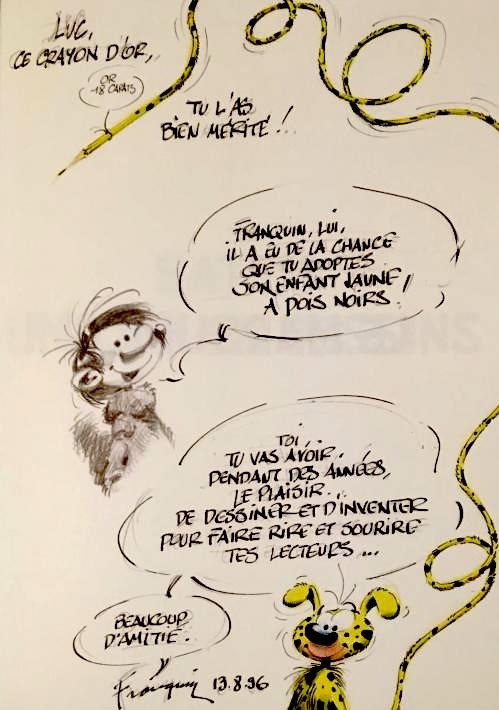 LUC,
CE CRAYON D'OR,
OR
18 CARATS
TU L'AS
BIEN MÉRITÉ !
FRANQUIN, LUI,
IL A EU DE LA CHANCE
QUE TU ADOPTES
SON ENFANT JAUNE,
A POIS NOIRS.
TOI,
TU VAS AVOIR,
PENDANT DES ANNÉES,
LE PLAISIR...
DE DESSINER ET D'INVENTER
POUR FAIRE RIRE ET SOURIRE
TES LECTEURS ...
BEAUCOUP
D'AMITIÉ.
Franquin 13.8.96